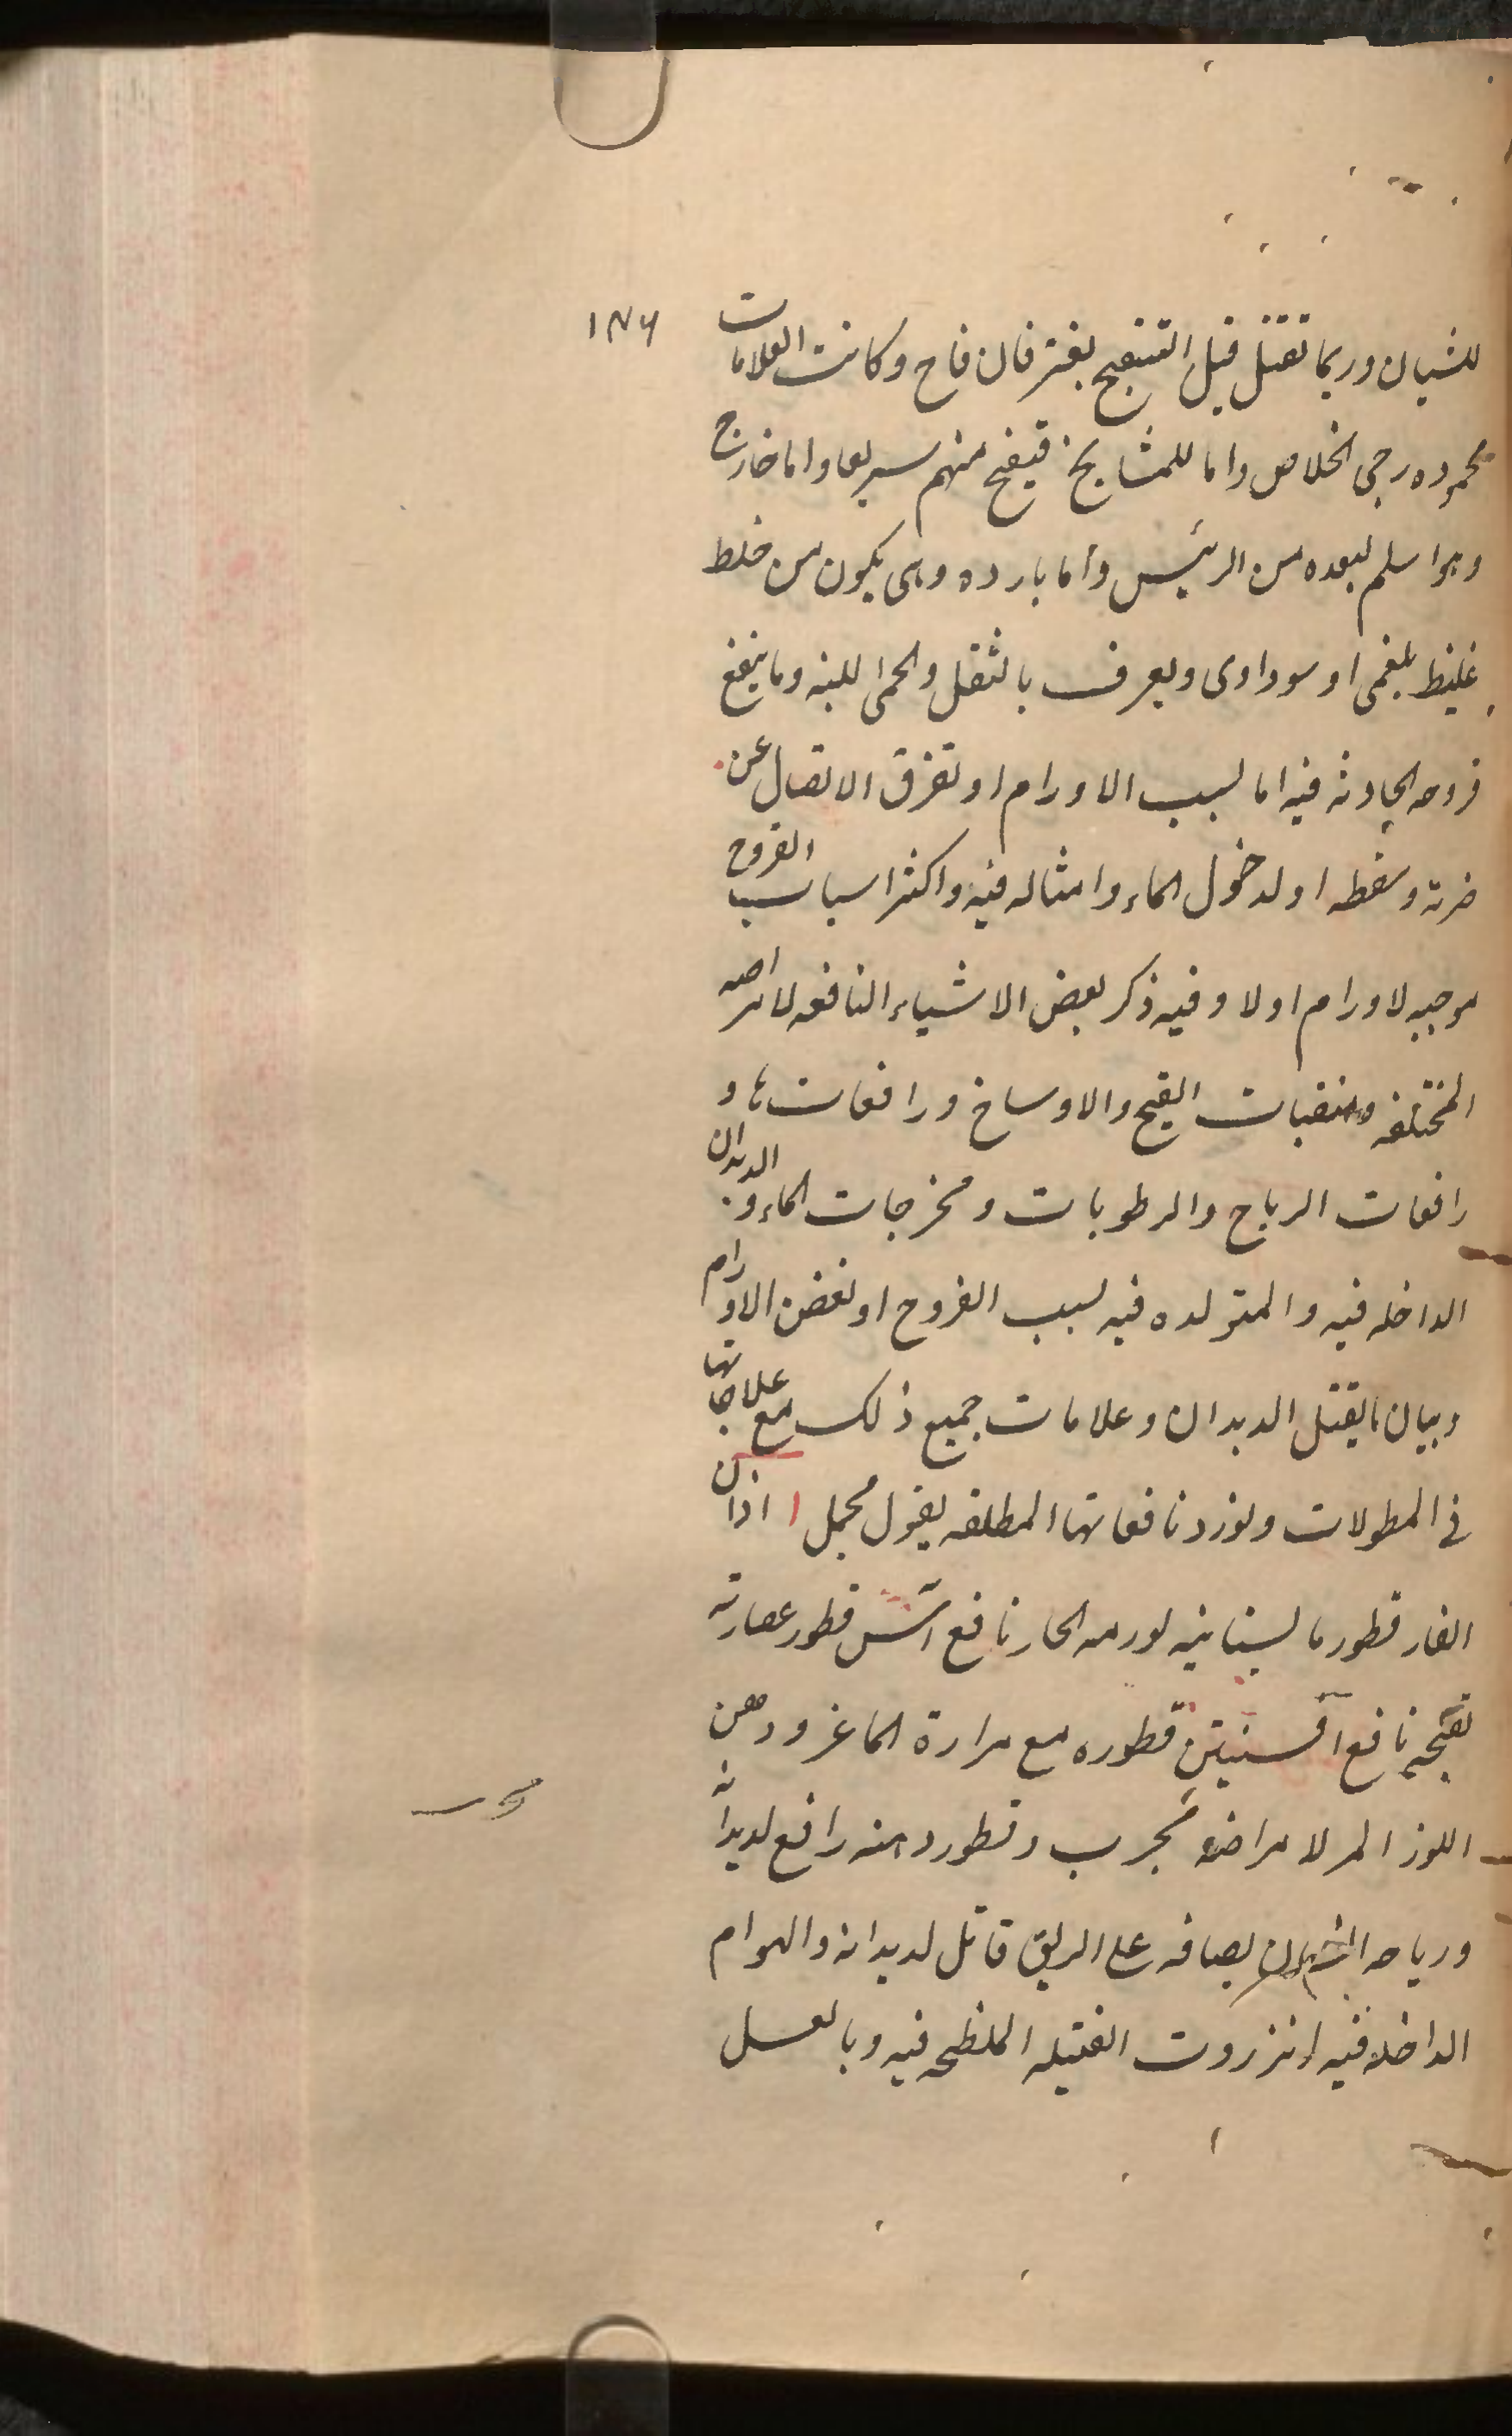 ١٣٦
للشبان وربما تقتل قبل التنقيح بغتر فان قاح وكانت العلامات
محموده رجى الخلاص واما للمشايخ فيقيح منهم سريعا واما خارج
وهو اسلم لبعده من الرئيس واما بارده وهى يكون من خلط
غليظ بلغمى او سوداوى ويعرف بالثقل والحمى اللينه وما ينفع
قروحه الحادثه فيه اما لسبب الاورام او تفرق الاتصال عن
ضربة وسقطه او لدخول الماء وامثاله فيه واكثر اسباب القروح
موجبه لاورام اولا وفيه ذكر بعض الاشياء النافعه لامراضه
المختلفه ومنقيات القيح والاوساخ ورافعاتها و
رافعات الرياح والرطوبات ومخرجات الماء والديدان
الداخله فيه والمتولده فيه لسبب القروح او لبعض الاورام
وبيان ما يقتل الديدان وعلامات جميع ذلك مع علاجاتها
فى المطولات ونورد نافعاتها المطلقه بقول مجمل اذان
الفار قطور ما لبستانيه لورمه الحار نافع آس قطور عصارته
لقيحه نافع افسنتين قطوره مع مرارة الماعز ودهن
اللوز المر لامراضه مجرب وقطور دهنه رافع لديدانه
ورياحه بصاقه على الريق قاتل لديدانه والهوام
الداخله فيه انزروت الفتيله الملطخه فيه وبالعسل